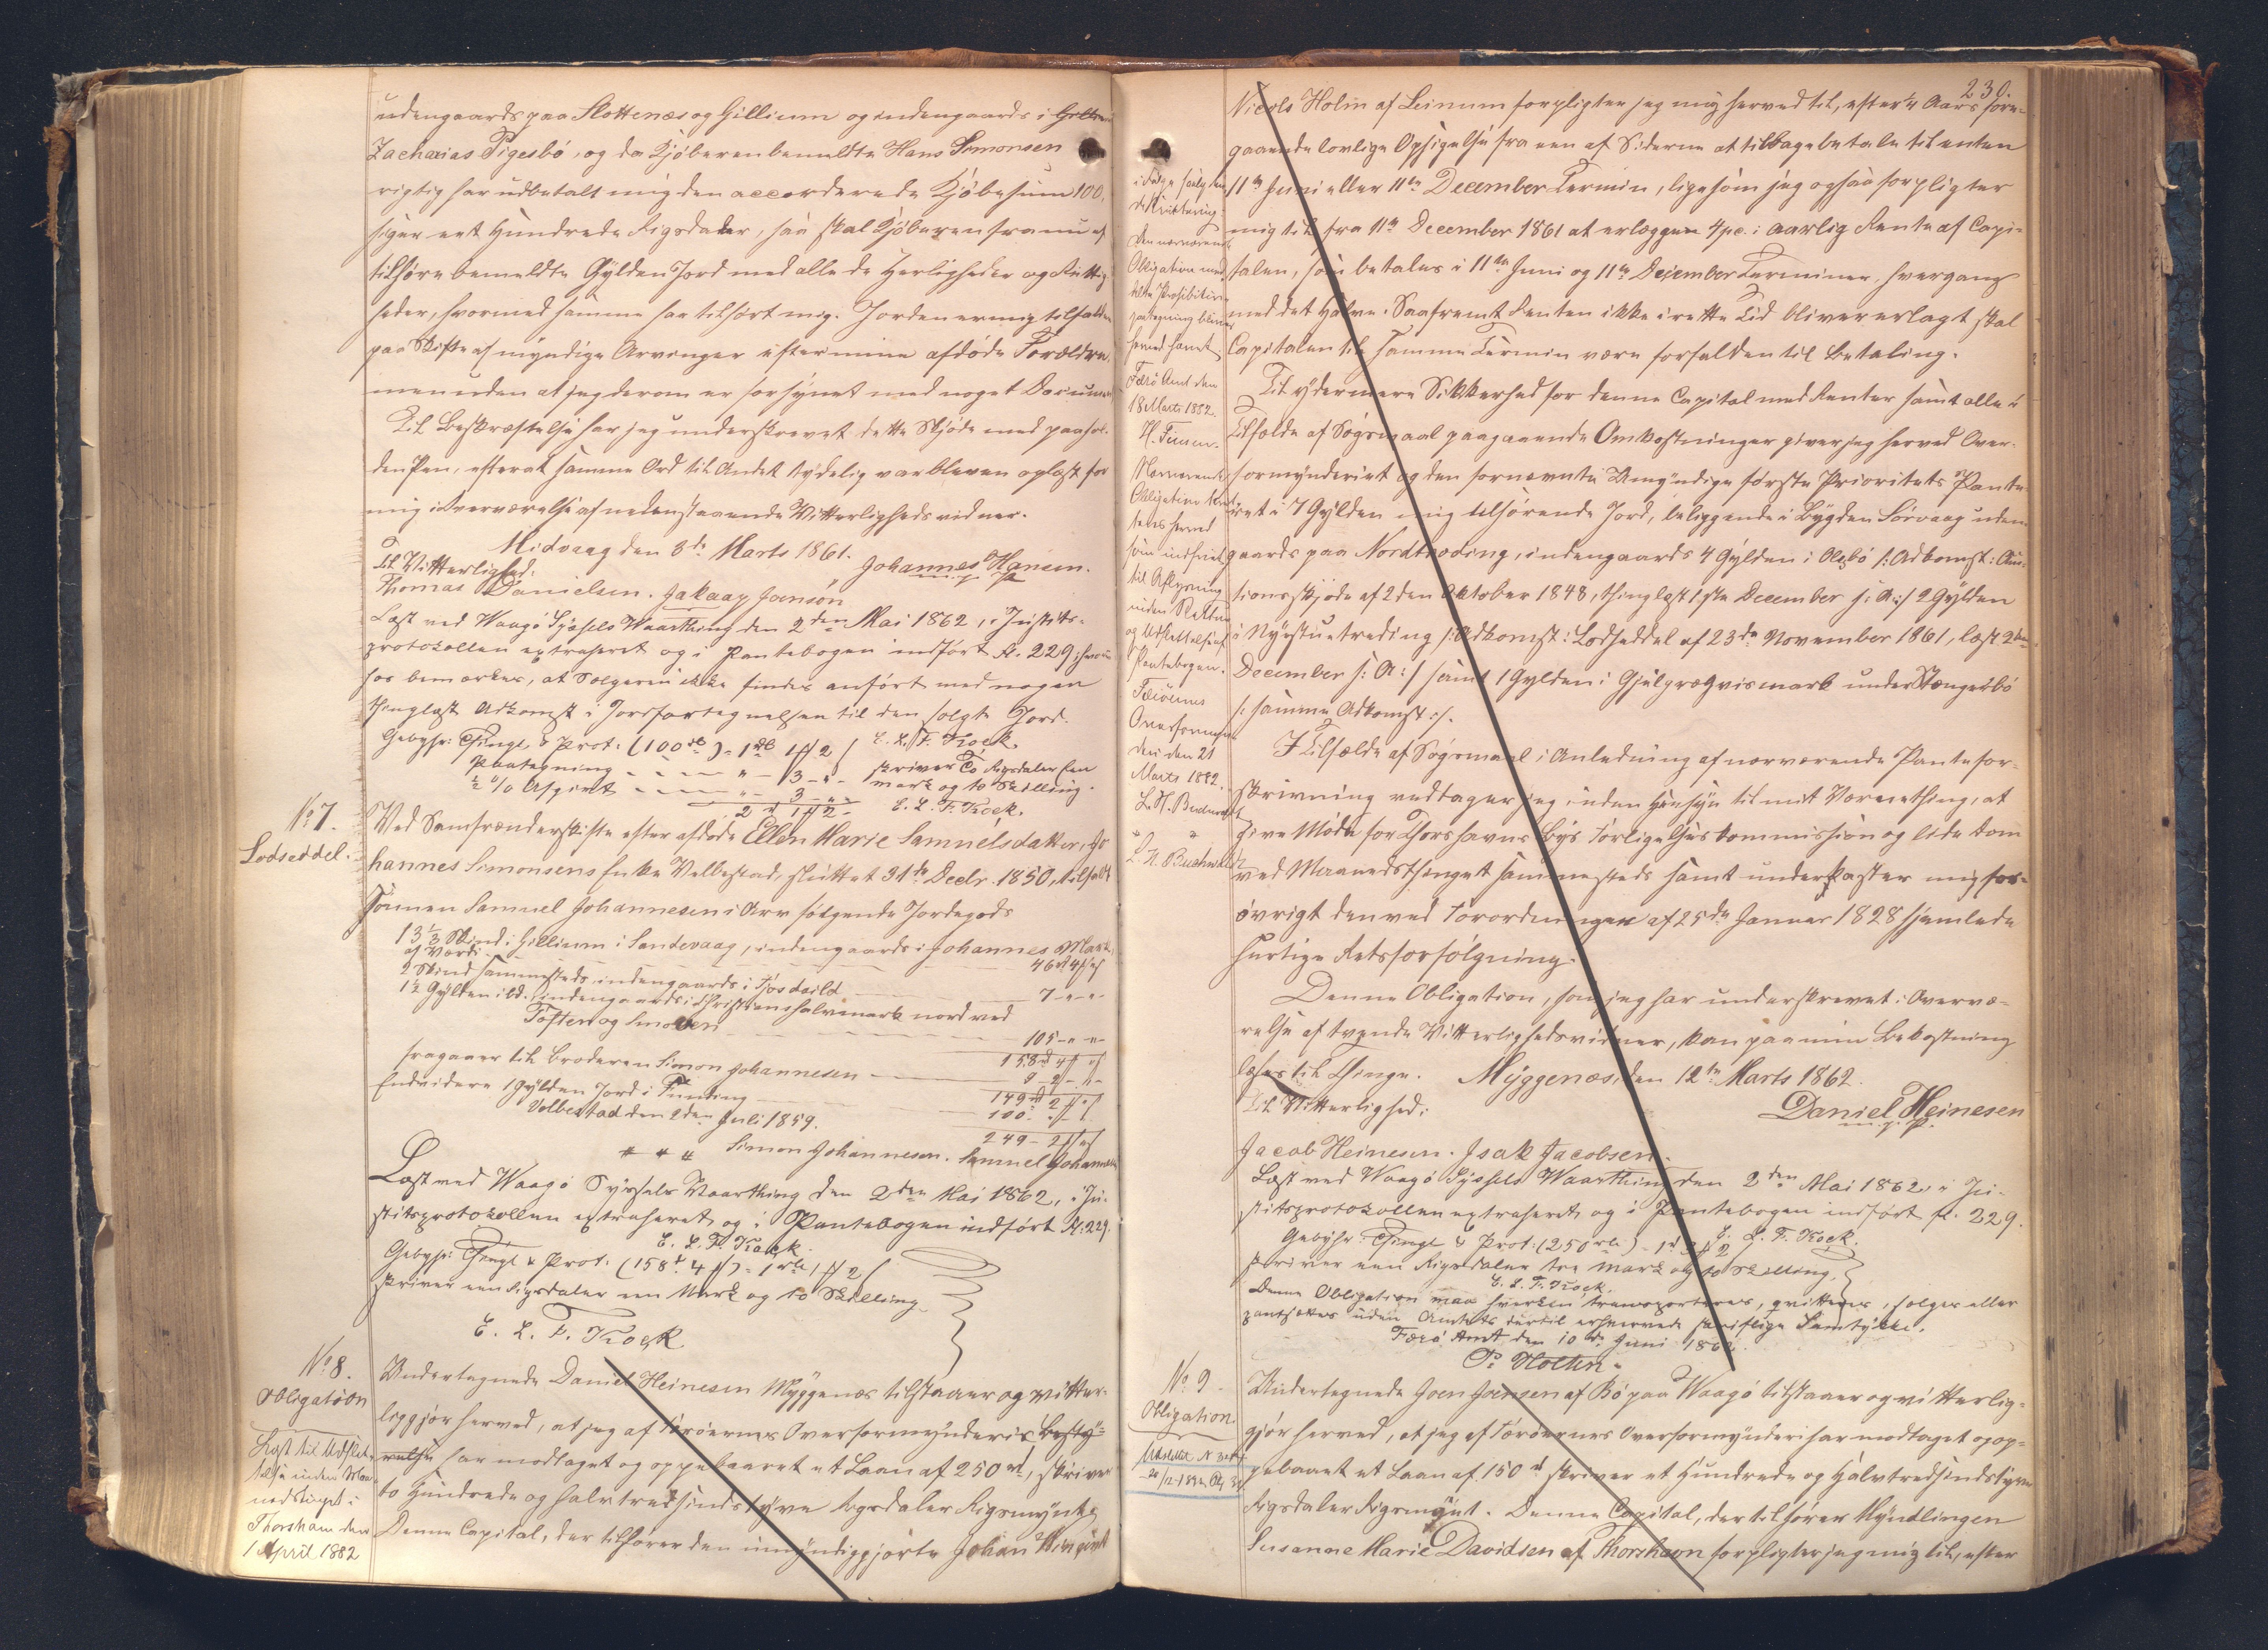 udengaards paa Slottenæs og Gillium og indengaards i
Zacharias Pigesbö, og da Kjöberen bemeldte Hans Simonsen
rigtig har udbetalt mig den accorderede Kjöbesum 100,
siger eet Hundrede Rigsdaler, saa skal Kjöberen fra nu af
tilhöre bemeldte Gylden Jord med alle de Herligheder og Rettig-
heder, hvormed samme har tilhört mig. Jorden er mig tilfalden
paa Skifte af myndige Arvinger efter mine afdöde Forældre,
men uden at jeg derom er forsynet med noget Document
Til Bekræftelse har jeg underskrevet dette Skjöde med paahol-
den Pen, efterat samme Ord til Andet tydelig var bleven oplæst for
mig i Overværelse af nedenstaaende Vitterligheds vidner.
Midvaag den 3de Marts 1861.
Til Vitterlighed:
Johannes Hansen.
m. f. P.
Thomas Danielsen. Jakaap Joensön
Læst ved Waagö Syssels Vaarthing den 2den Mai 1862, i Justits-
protokollen extraheret og i Pantebogen indfört fl. 229; hvor
hos bemærkes, at Sælgeren ikke findes anfört med nogen
thinglæst Adkomst i Jordfortegnelsen til den solgte Jord.
Gebyhr: Thingl. & Prot. (100 rd) = 1 rd 1 # 2
E. L. F. Kock.
Paategning — " — 3 - " -
skriver To Rigsdaler een
½ % Afgivt — " — 3 - " -
mark og to Skilling.
2 rd 1 # 2 -
E. L. F. Kock.
No 7.
Lodseddel.
Ved Samfrænderskifte efter afdöde Ellen Marie Samuelsdatter, Jo
hannes Simonsens Enke Velbestad, sluttet 31te Decbr. 1850, tilfaldt
Sönnen Samuel Johannesen i Arv fölgende Jordegods
13 ⅓ Skind i Gillium i Sandevaag, indengaards i Johannes Mark
af Værdi — 46 rd 4 # " s
2 Skind sammesteds indengaards i Fjosdeild — 7 - " - "
1½ Gylden ibd. indengaards i Christians halvemark nord ved
Toften og Smoveri — 105 - " - "
158 rd 4 # " s
fragaaer til Broderen Simon Johannesen — 9 - 2 - " -
149 rd 2 # " s
Endvidere 1 Gylden Jord i Funding — 100 - " - "
Velbestad den 2den Juli 1859.
249 - 2 # " s
" " " Simon Johannesen. Samuel Johannesen
Læst ved Waagö Syssels Vaarthing den 2den Mai 1862, i Ju-
stitsprotokollen extraheret og i Pantebogen indfört fl. 229.
E. L. F. Kock.
Gebyhr: Thingl & Prot. (158 rd 4 #) = 1 rd 1 # 2
skriver een Rigsdaler een Mark og to Skilling
E. L. F. Kock
No 8.
Obligation
Læst til Udslet-
telse inden Maa-
nedsthinget i
Thorshavn den
1 April 1882
Undertegnede Daniel Heinesen Myggenæs tilstaaer og vitter-
liggjör herved, at jeg af Færöernes Overformynderis Besty-
relse har modtaget og oppebaaret et Laan af 250 rd, skriver
to Hundrede og halvtredsindstyve Rigsdaler Rigsmynt,
Denne Capital, der tilhører den umyndiggjorte Johan
230.
Nicols Holm af Leinum forpligter jeg mig herved til, efter ½ Aars fore-
gaaende lovlige Opsigelse fra een af Siderne at tilbagebetale til enten
11te Juni eller 11te December Termin, ligesom jeg ogsaa forpligter
mig til fra 11te December 1861 at erlægge 4 pc. i aarlig Rente af Capi-
talen, som betales i 11te Juni og 11te December Terminer, hvergang
med det Halve. Saafremt Renten ikke i rette Tid bliver erlagt skal
Capitalen til samme Termin være forfalden til Betaling.
Til ydermere Sikkerhed for denne Capital med Renter samt alle i
Tilfælde af Sögsmaal paagaaende Omkostninger giver jeg herved Over-
formynderiet og den fornævnte Umyndige förste Prioritets Pante-
ret i 7 Gylden mig tilhörende Jord, beliggende i Bygden Sörvaag uden-
gaards paa Nordtrooding, indengaards 4 Gylden i Olesbö /: Adkomst: Auc-
tionsskjöde af 2den Oktober 1848, thinglæst 1ste December s: A:/ 2 Gylden
i Nyestuetreding /: Adkomst: Lodseddel af 23de November 1861, læst 2den
December s: A:/ samt 1 Gylden i Gjilgrægvismark under Stængesbö
/: samme Adkomst :/.
I Tilfælde af Sögsmaal i Anledning af nærværende Pantefor-
skrivning vedtager jeg, uden Hensyn til mit Værnething, at
give Möde for Thorshavns Bys Forligelseskommission og lide Dom
ved Maanedsthinget sammesteds samt underkaster mig for-
övrigt den ved Forordningen af 25de Januar 1828 hjemlede
hurtige Retsforfölgning.
Denne Obligation, som jeg har underskrevet i Overvæ-
relse af tvende Vitterlighedsvidner, kan paa min Bekostning
læses til Thinge. Myggenæs, den 12te Marts 1862.
Til Vitterlighed:
Daniel Heinesen
m. f. P.
Jacob Heinesen. Isak Jacobsen.
Læst ved Waagö Syssels Vaarthing den 2den Mai 1862, i Ju-
stitsprotokollen extraheret og i Pantebogen indfört fl. 229.
E. L. F. Kock.
Gebyhr: Thingl & Prot: (250 rd) = 1 rd 3 # 2
skriver een Rigsdaler tre Mark og to Skilling.
E. L. F. Kock.
Denne Obligation maa hverken transporteres, qvitteres, sælges eller
pantsættes uden Amtets dertil erhvervede skriftlige Samtykke.
Færö Amt den 10de Juni 1862.
P. Holten.
i Følge
Qvittering
den nærværende
Obligation med-
delte Prohibitiv-
paategning bliver
herved hævet
Færö Amt den
18 Marts 1882.
H. Finsen.
Nærværende
Obligation
herved
som indfriet
til Aflysning
inden Retten
og Udslettelse af
Pantebogen.
Færöernes
Overformyn-
deri den 21
Marts 1882.
L. H. Buchwaldt
" "
L. H. Buchwaldt
No 9.
Obligation
Undertegnede Joen Joensen af Bö paa Waagö tilstaaer og vitterlig-
gjör herved, at jeg af Færöernes Overformynderi har modtaget og op-
pebaaret et Laan af 150 rd skriver et Hundrede og Halvtredsindstyve
Rigsdaler Rigsmynt. Denne Capital, der tilhører Myndlingen
Susanne Marie Davidsen af Thorshavn forpligter jeg mig til, efter